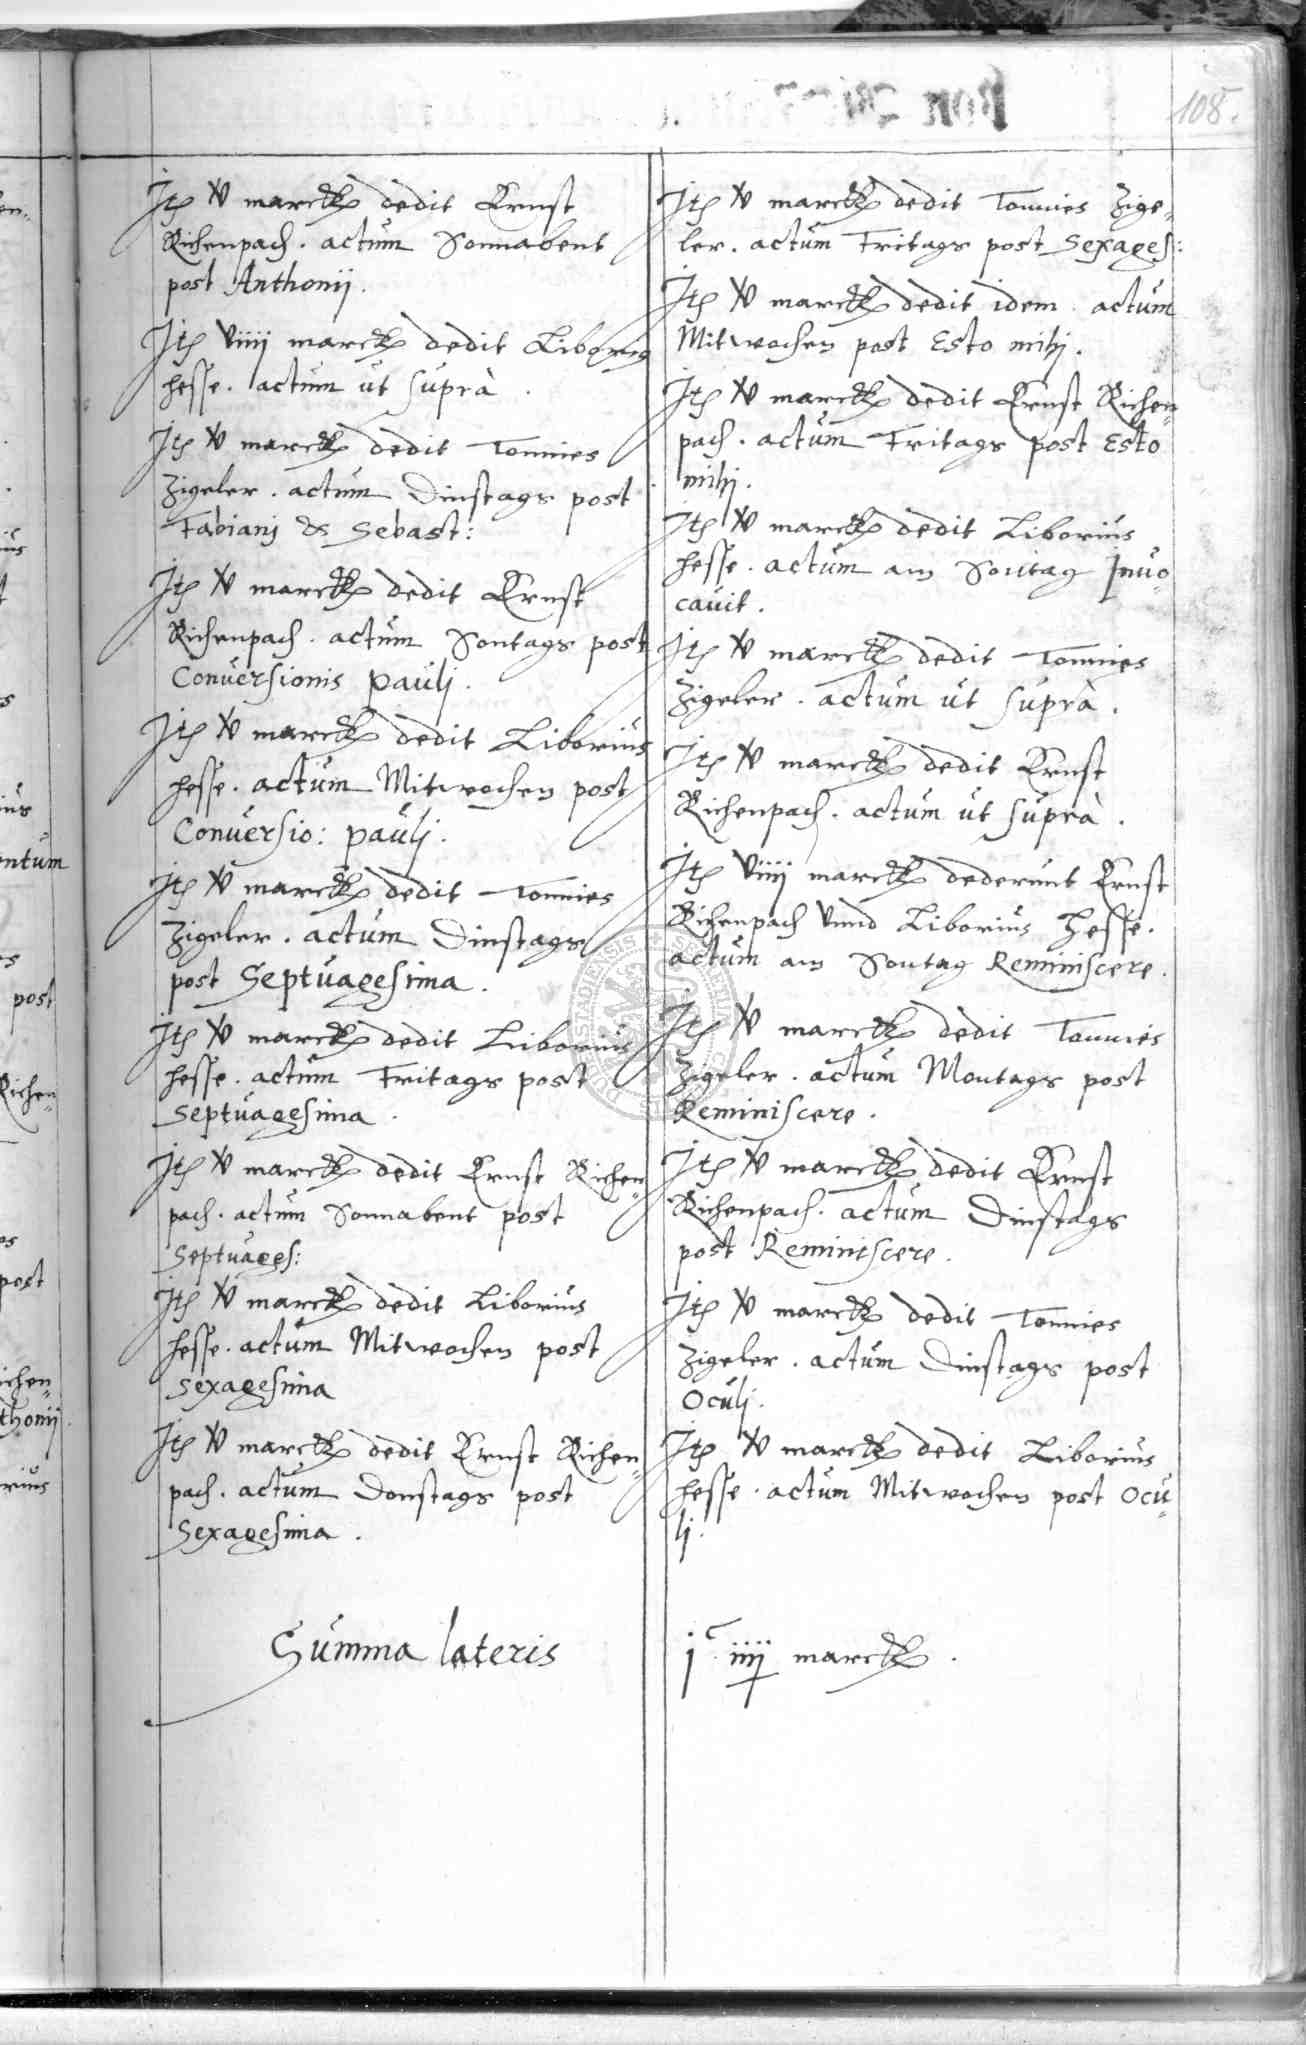 108.
Itē v̸ marck dedit Ernst
Richenpach. actum Sonnabent
post Anthonij.
Itē viiij marck dedit Liborius
Hesse. actum ut suprà.
Itē v̸ marck dedit Tonnies
Zigeler. actum Dinstags post
Fabianj & Sebast:
Itē v̸ marck dedit Ernst
Richenpach. actum Sontags post
Conversionis paulj.
Itē v̸ marck dedit Liborius
Hesse. actum Mitwochen post
Conversio: paulj.
Itē v̸ marck dedit Tonnies
Zigeler. actum Dinstags
post Septuagesima.
Itē v̸ marck dedit Liborius
Hesse. actum Fritags post
Septuagesima.
Itē v̸ marck dedit Ernst Richen„
pach. actum Sonnabent post
Septuages:
Itē v̸ marck dedit Liborius
Hesse. actum Mitwochen post
Sexagesima
Itē v̸ marck dedit Ernst Richen„
pach. actum Donstags post
Sexagesima.
Itē v̸ marck dedit Tonnies Zige„
ler. actum Fritags post Sexages:
Itē v̸ marck dedit idem. actum
Mitwochen post Esto mihj.
Itē v̸ marck dedit Ernst Richen„
pach. actum Fritags post Esto
mihj.
Itē v̸ marck dedit Liborius
Hesse. actum am Sontag Invo„
cavit.
Itē v̸ marck dedit Tonnies
Zigeler. actum ut suprà.
Itē v̸ marck dedit Ernst
Richenpach. actum ut suprà.
Itē viiij marck dederunt Ernst
Richenpach vnnd Liborius Hesse.
actum am Sontag Reminiscere.
Itē v̸ marck dedit Tonnies
Zigeler. actum Montags post
Reminiscere.
Itē v̸ marck dedit Ernst
Richenpach. actum Dinstags
post Reminiscere.
Itē v̸ marck dedit Tonnies
Zigeler. actum Dinstags post
Oculj.
Itē v̸ marck dedit Liborius
Hesse. actum Mitwochen post Ocu„
lj.
Summa lateris jᶜ iiij̵ marck.